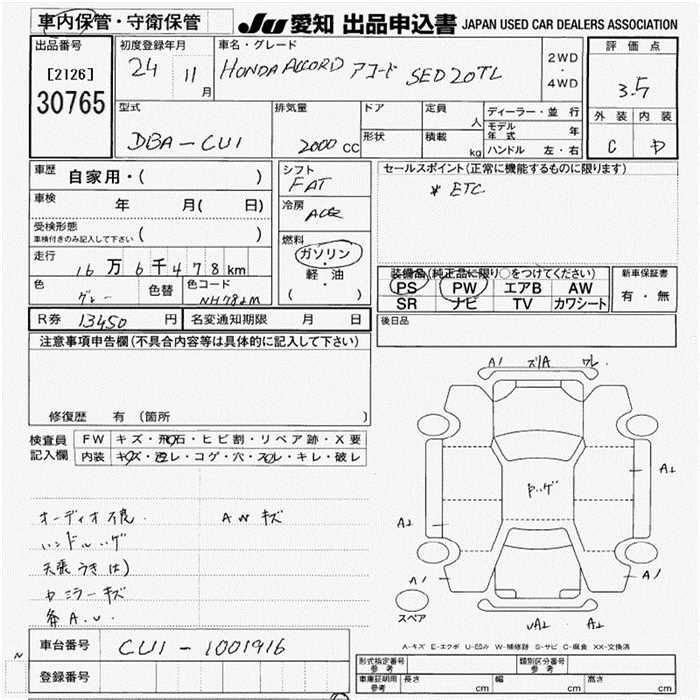 車内保管・守衛保管 JU 愛知 出品申込書 JAPAN USED CAR DEALERS ASSOCIATION
出品番号 初度登録年月 車名・グレード 評価点
[2126] 24 11月 HONDA ACCORD アコード SED 20TL 2WD・4WD 3.5
30765 外装 内装
型式 排気量 ドア 定員 人 ディーラー・並行 C D
DBA-CU1 2000 CC 形状 積載 kg モデル年式 年
ハンドル 左・右
車歴 自家用・( ) シフト FAT セールスポイント(正常に機能するものに限ります)
車検 年 月( 日) 冷房 * ETC
受検形態
車検付きのみ記入して下さい ( )
走行 16万6千478km 燃料 ガソリン・軽油 ( )
色 グレー 色替 色コード NH782M
装備品(純正品に限り○をつけてください) 新車保証書
PS PW エアB AW 有・無
SR ナビ TV カワシート
R券 13450円 名変通知期限 月 日 後日品
注意事項申告欄(不具合内容等は具体的に記入して下さい)
修復歴 有(箇所 )
検査員記入欄 FW キズ・飛石・ヒビ割・リペア跡・X要
内装 キズ・汚レ・コゲ・穴・スレ・キレ・破レ
オーディオ不良. AWキズ
ハンドルハゲ
天張うきはり
A.U.
A1 ズリA ワレ
A2
A2
A1 A1
スペア
A2
A-キズ E-エクボ U-凹み W-補修跡 S-サビ C-腐食 XX-交換済
車台番号 CU1-1001916
登録番号
形式指定番号 参考 類別区分番号 参考
車庫証明用 参考 長さ cm 幅 cm 高さ cm